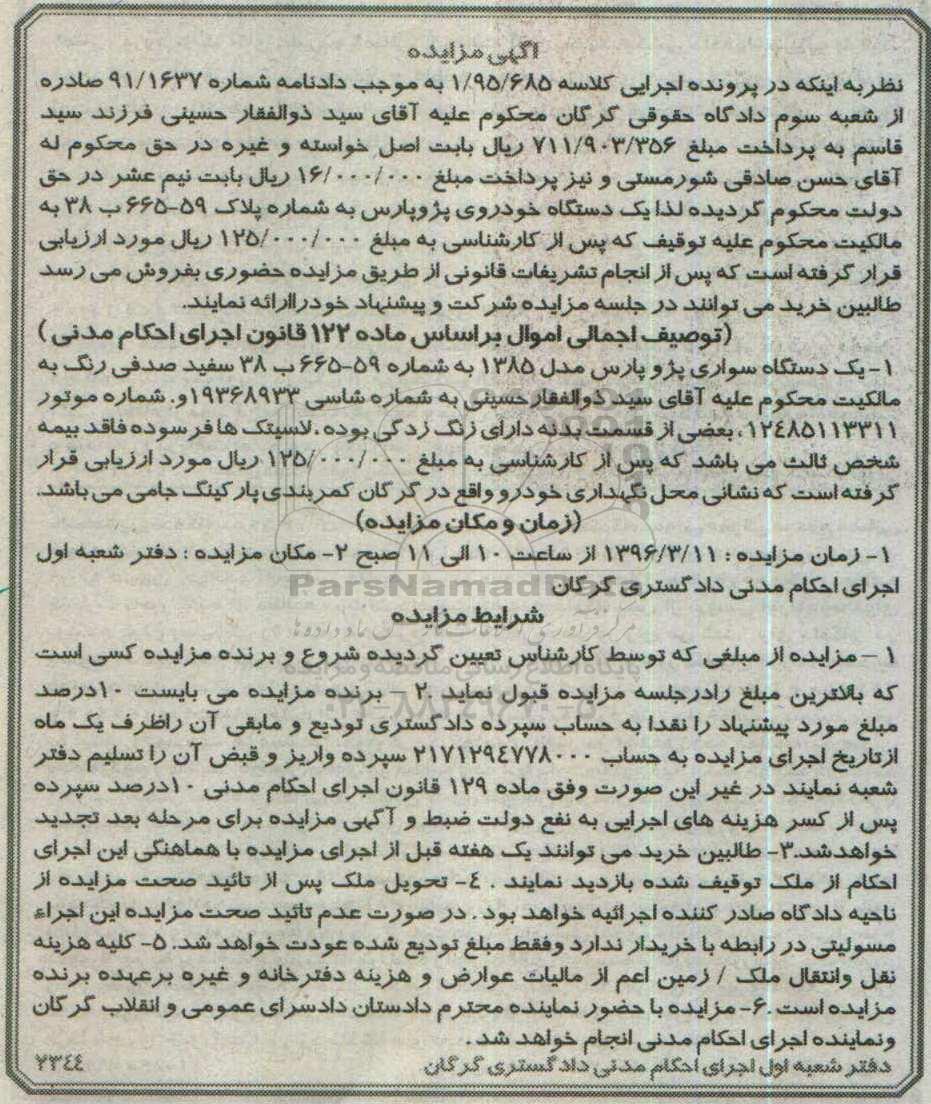 آگهی مزایده
نظر به اینکه در پرونده اجرایی کلاسه ۱/۹۵/۶۸۵ به موجب دادنامه شماره ۹۱/۱۶۳۷ صادره
از شعبه سوم دادگاه حقوقی گرگان محکوم علیه آقای سید ذوالفقار حسینی فرزند سید
قاسم به پرداخت مبلغ ۷۱۱/۹۰۳/۳۵۶ ریال بابت اصل خواسته و غیره در حق محکوم له
آقای حسن صادقی شورمستی و نیز پرداخت مبلغ ۱۶/۰۰۰/۰۰۰ ریال بابت نیم عشر در حق
دولت محکوم گردیده لذا یک دستگاه خودروی پژوپارس به شماره پلاک ۵۹-۶۶۵ ب ۳۸ به
مالکیت محکوم علیه توقیف که پس از کارشناسی به مبلغ ۱۲۵/۰۰۰/۰۰۰ ریال مورد ارزیابی
قرار گرفته است که پس از انجام تشریفات قانونی از طریق مزایده حضوری بفروش می رسد
طالبین خرید می توانند در جلسه مزایده شرکت و پیشنهاد خود راارائه نمایند.
(توصیف اجمالی اموال براساس ماده ۱۲۲ قانون اجرای احکام مدنی )
۱-یک دستگاه سواری پژو پارس مدل ۱۳۸۵ به شماره ۵۹-۶۶۵ ب ۳۸ سفید صدفی رنگ به
مالکیت محکوم علیه آقای سید ذوالفقارحسینی به شماره شاسی ۱۹۳۶۸۹۳۳و. شماره موتور
۱۲۴۸۵۱۱۳۳۱۱، بعضی از قسمت بدنه دارای زنگ زدگی بوده .لاستیک ها فرسوده فاقد بیمه
شخص ثالث می باشد که پس از کارشناسی به مبلغ ۱۲۵/۰۰۰/۰۰۰ ریال مورد ارزیابی قرار
گرفته است که نشانی محل نگهداری خودرو واقع در گرگان کمربندی پارکینگ جامی می باشد.
(زمان و مکان مزایده)
۱- زمان مزایده : ۱۳۹۶/۳/۱۱ از ساعت ۱۰ الی ۱۱ صبح ۲- مکان مزایده : دفتر شعبه اول
اجرای احکام مدنی دادگستری گرگان
ParsNamadData
شرایط مزایده
۱ – مزایده از مبلغی که توسط کارشناس تعیین گردیده شروع و برنده مزایده کسی است
که بالاترین مبلغ رادرجلسه مزایده قبول نماید .۲ – برنده مزایده می بایست ۱۰درصد
مبلغ مورد پیشنهاد را نقدا به حساب سپرده دادگستری تودیع و مابقی آن راظرف یک ماه
ازتاریخ اجرای مزایده به حساب ۲۱۷۱۲۹٤۷۷۸۰۰۰ سپرده واریز و قبض آن را تسلیم دفتر
شعبه نمایند در غیر این صورت وفق ماده ۱۲۹ قانون اجرای احکام مدنی ۱۰درصد سپرده
پس از کسر هزینه های اجرایی به نفع دولت ضبط و آگهی مزایده برای مرحله بعد تجدید
خواهدشد.۳- طالبین خرید می توانند یک هفته قبل از اجرای مزایده با هماهنگی این اجرای
احکام از ملک توقیف شده بازدید نمایند . ٤- تحویل ملک پس از تائید صحت مزایده از
ناحیه دادگاه صادر کننده اجرائیه خواهد بود . در صورت عدم تائید صحت مزایده این اجراء
مسولیتی در رابطه با خریدار ندارد وفقط مبلغ تودیع شده عودت خواهد شد. ۵- کلیه هزینه
نقل وانتقال ملک / زمین اعم از مالیات عوارض و هزینه دفترخانه و غیره برعهده برنده
مزایده است .۶- مزایده با حضور نماینده محترم دادستان دادسرای عمومی و انقلاب گرگان
ونماینده اجرای احکام مدنی انجام خواهد شد .
دفتر شعبه اول اجرای احکام مدنی دادگستری گرگان ۲۳٤٤